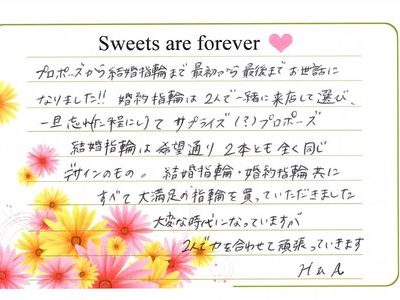 Sweets are forever
プロポーズから結婚指輪まで最初から最後までお世話に
なりました!! 婚約指輪は2人で一緒に来店して選び、
一旦忘れた(程にし)てサプライズ(?)プロポーズ
結婚指輪は希望通り2本とも全く同じ
デザインのもの。結婚指輪・婚約指輪共に
すべて大満足の指輪を買っていただきました
大変な時代になっていますが
2人で力を合わせて頑張っていきます
H & A